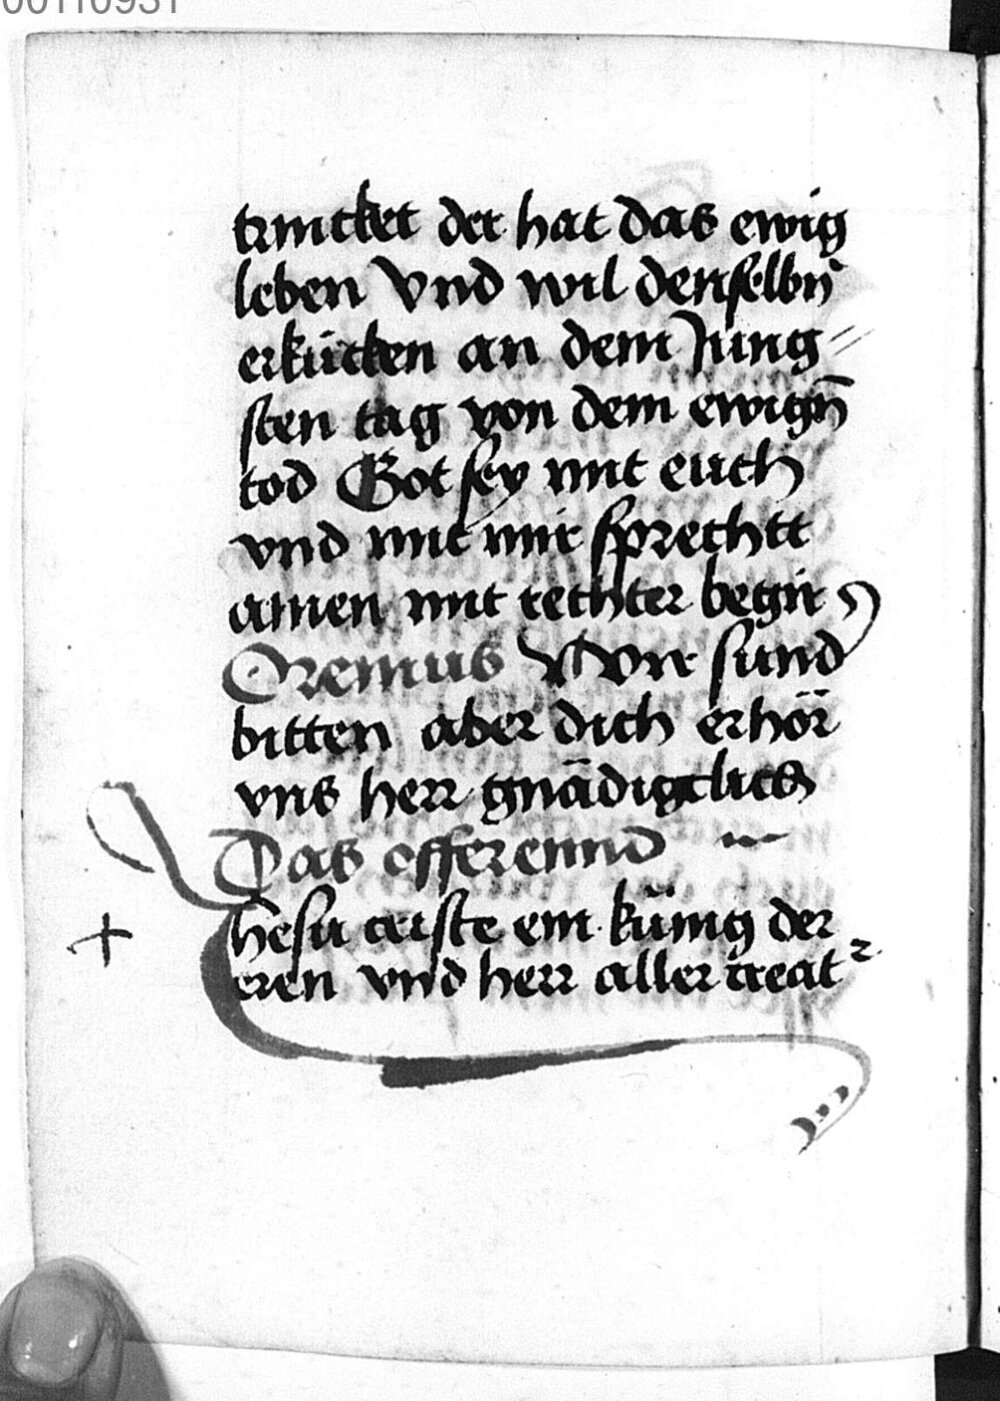 00110931
trincket der hat das ewig
leben Vnd wil denselbn̄
erkücken an dem Jung//
sten tag von dem ewign̄
tod Got sey mit euch
vnd mit mir sprechtt
amen mit rechter begir
Oremus Wir sund
bitten aber dich erhör
vns herr gnädigclich
Das offerennd
Jhesu criste ein künig der
eren vnd herr aller creat²